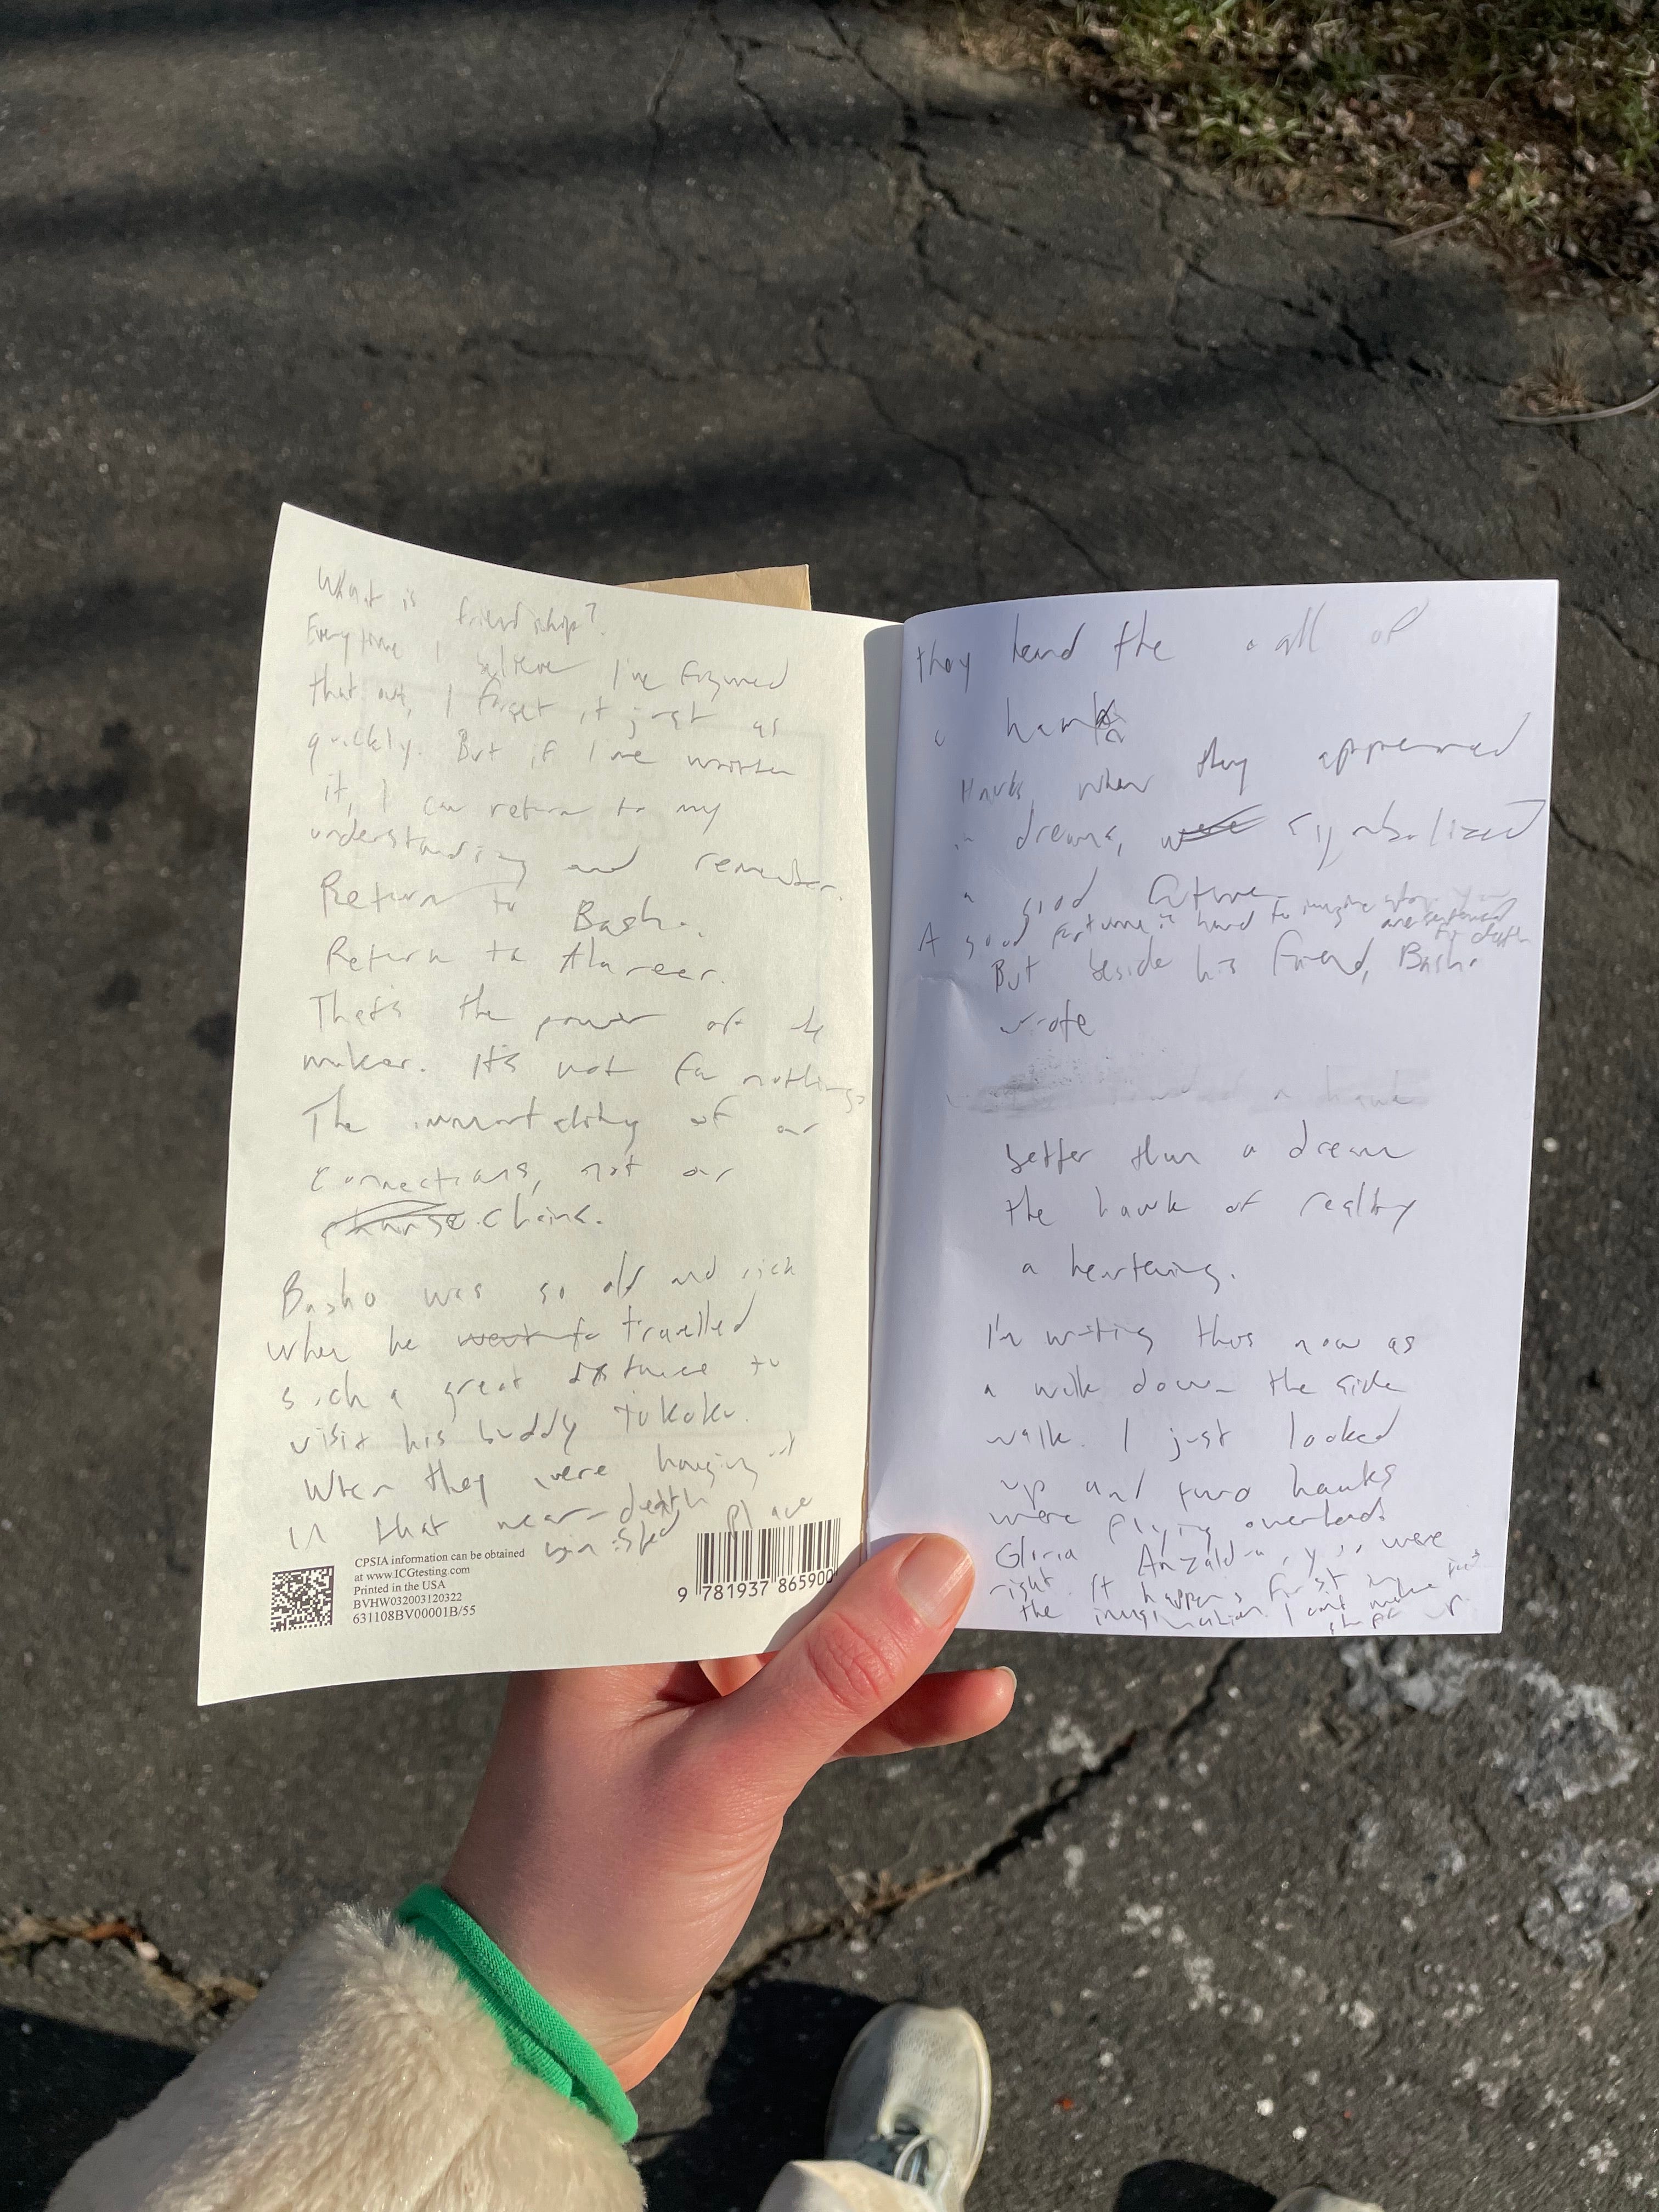 What is friendship?
Everytime I believe I've figured
that out, I forget it just as
quickly. But if I've written
it, I can return to my
understanding and remember.
Return to Basho.
Return to Alareer.
That's the power of the
maker. It's not for nothing.
The immortality of our
connections, not our
chains.
Basho was so old and sick
when he went to travelled
such a great distance to
visit his buddy Tokoku.
When they were hanging out
in that near-death
banished place
CPSIA information can be obtained
at www.ICGtesting.com
Printed in the USA
BVHW032003120322
631108BV00001B/55
9 781937 865900
they heard the call of
a hawk
Hawks when they appeared
in dreams, were symbolized
a good fortune
A good fortune is hard to imagine when you
are sentenced
to death
But beside his friend, Basho
wrote
a hawk
better than a dream
the hawk of reality
a heartening.
I'm writing this now as
a walk down the side
walk. I just looked
up and two hawks
were flying overhead.
Gloria Anzaldua, you were
right. It happens first in
the imagination. I can't make this
shit up.